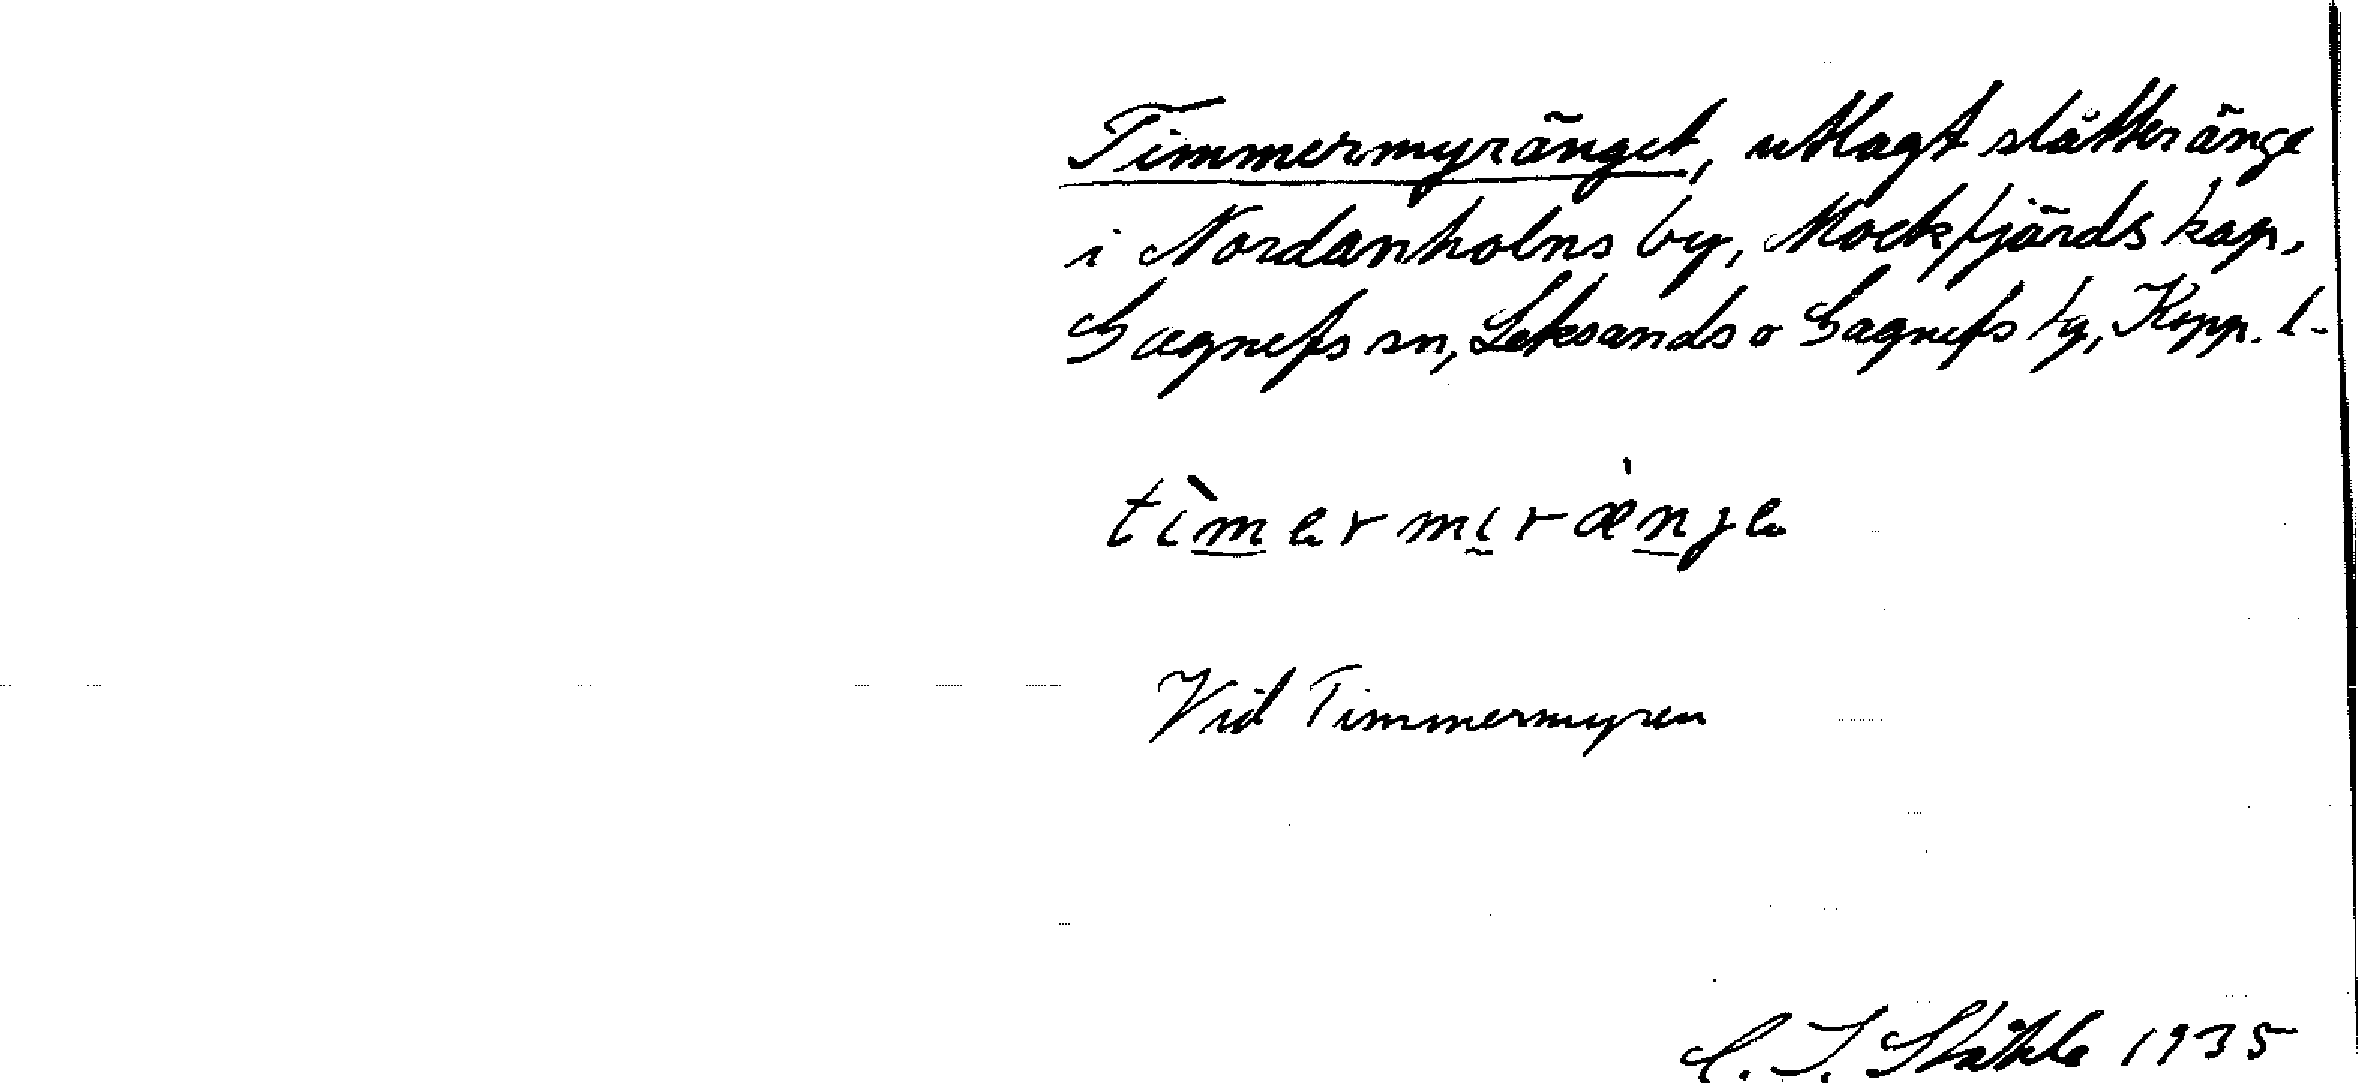 Timmermyränget, utlagt slåtteränge
i Nordanholns by, Mockfjärds kap.
Gagnefs sn, Leksands o Gagnefs tg, Kopp. l.
tìmermirænje
Vid Timmermyren
C. I. Ståhle 1935